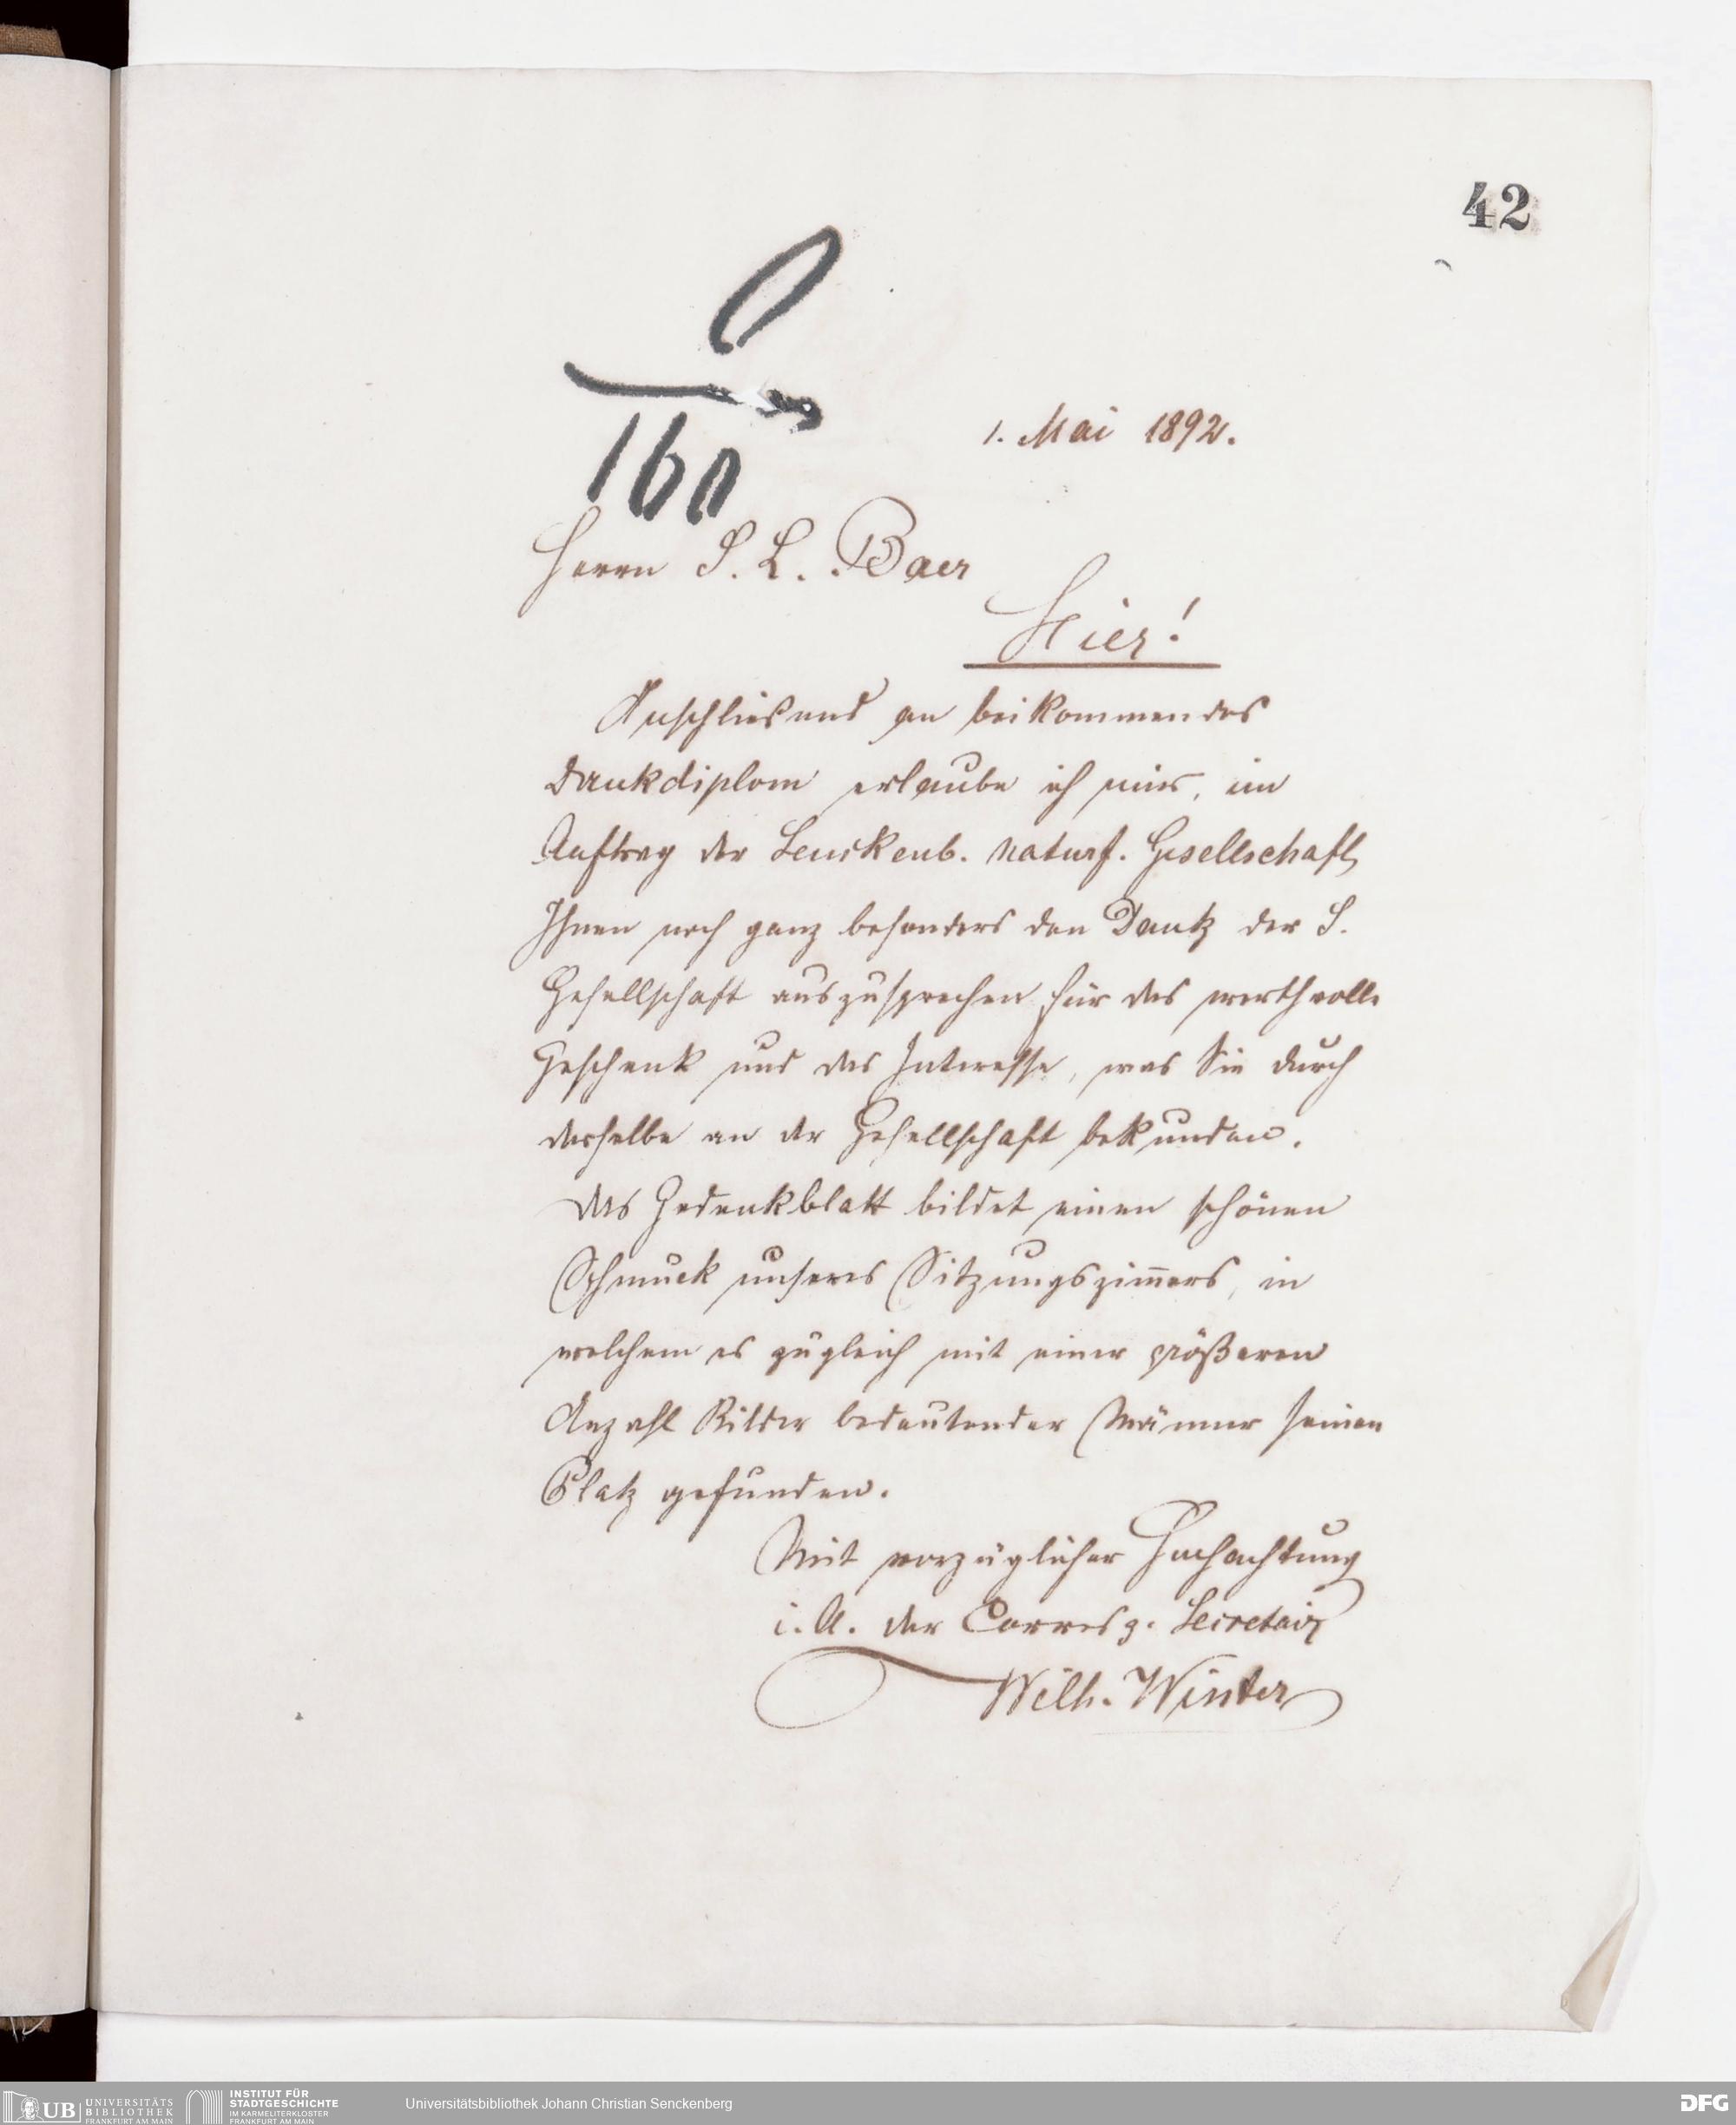 42
0
160
1. Mai 1892.
Herrn S. L. Baer
Hier!
Anschließend an beikommendes
Dankdiplom erlaube ich mir, im
Auftrag der Senckenb. naturf. Gesellschaft,
Ihnen noch ganz besonders den Dank der S.
Gesellschaft auszusprechen für das werthvolle
Geschenk und das Interesse, was Sie durch
dasselbe an der Gesellschaft bekunden.
Das Gedenkblatt bildet einen schönen
Schmuck unseres Sitzungszim̄ers, in
welchem es zugleich mit einer größeren
Anzahl Bilder bedeutender Männer seinen
Platz gefunden.
Mit vorzüglicher Hochachtung
i. A. der Corresp. Secretair
Wilh. Winter
UB UNIVERSITÄTS BIBLIOTHEK FRANKFURT AM MAIN
INSTITUT FÜR STADTGESCHICHTE IM KARMELITERKLOSTER FRANKFURT AM MAIN
Universitätsbibliothek Johann Christian Senckenberg
DFG